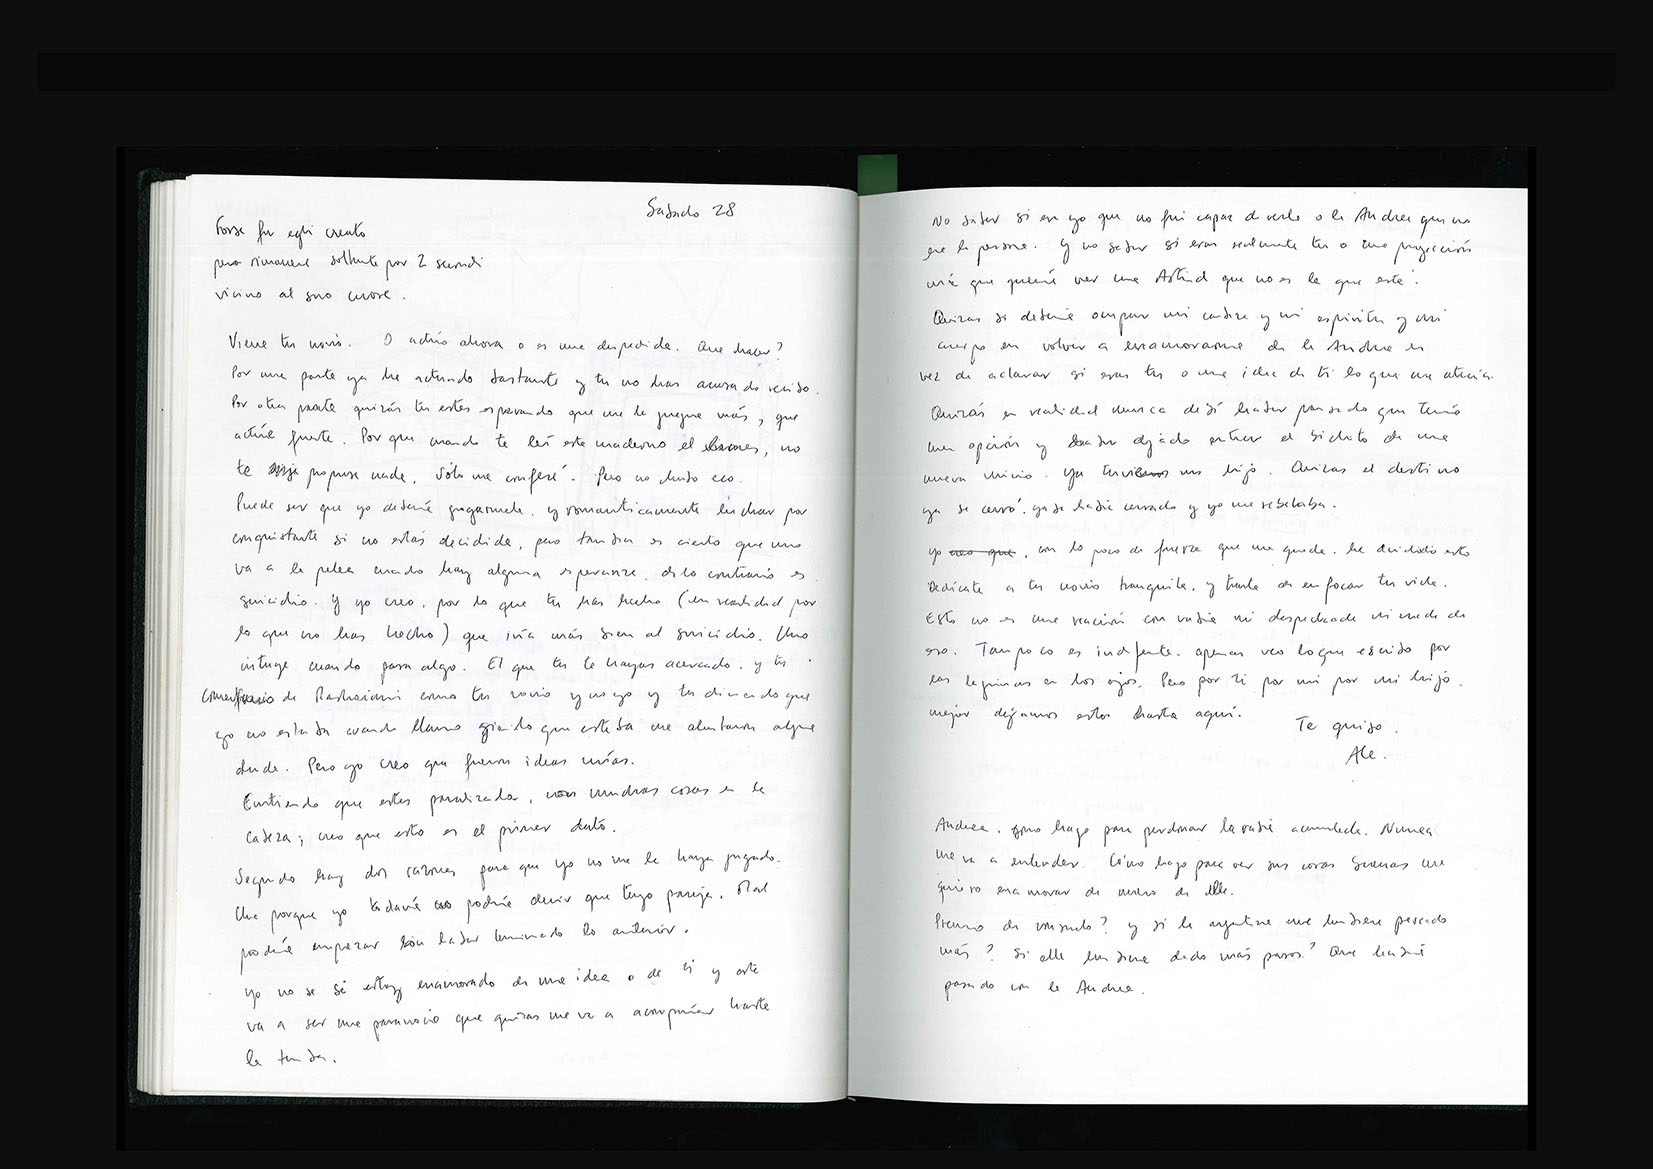 Sabado 28
Forse fu egli creato
per rimanere soltanto per 2 secondi
vicino al suo cuore.
Viene tu novio. O actúo ahora o es una despedida. Que hacer?
Por una parte ya he actuado bastante y tu no has acusado recibo.
Por otra parte quizás tu estes esperando que me la juegue más, que
actúe fuerte. Por que cuando te leí este cuaderno el lunes, no
te propuse nada, sólo me confesé. Pero no hubo eco.
Puede ser que yo debería jugarmela, y romanticamente luchar por
conquistarte si no estás decidida, pero tambien es cierto que uno
va a la pelea cuando hay alguna esperanza, de lo contrario es
suicidio. Y yo creo, por lo que tu has hecho (en realidad por
lo que no has hecho) que iría más bien al suicidio. Uno
intuye cuando pasa algo. El que tu te hayas acercado, y tu
comentario de como tu novio y no yo y tu diciendo que
yo no estaba cuando llamo siendo que estaba me alentaron alguna
duda. Pero yo creo que fueron ideas mías.
Entiendo que estes paralizada, con muchas cosas en la
cabeza; creo que esto es el primer dato.
Segundo hay dos razones para que yo no me la haya jugado.
Una porque yo todavía no podría decir que tengo pareja. Mal
podría empezar sin haber terminado lo anterior.
Yo no se si estoy enamorado de una idea o de ti y esta
va a ser una paranoia que quizas me va a acompañar hasta
la tumba.
No saber si era yo que no fui capaz de verla o la Andrea que no
era la persona. Y no saber si eras realmente tu o una proyección
mía que quería ver una Astrid que no es la que está.
Quizas si debería ocupar mi cabeza y mi espiritu y mi
cuerpo en volver a enamorarme de la Andrea en
vez de aclarar si eras tu o una idea de ti lo que me atraía.
Quizás en realidad nunca debí haber pensado que tenía
una opción y haber dejado entrar el bichito de una
nueva vida. Ya tuvimos un hijo. Quizas el destino
ya se cerró, ya se había cerrado y yo me rebelaba.
Yo creo que, con lo poco de fuerza que me queda, he decidido esto
Dedícate a tu novio tranquila, y trata de enfocar tu vida.
Esto no es una reacción con rabia ni despechada ni nada de
eso. Tampoco es indiferente, apenas veo lo que escribo por
las lagrimas en los ojos. Pero por ti por mi por mi hijo.
mejor dejamos esto hasta aquí.
Te quiso.
Ale.
Andrea. Como hago para perdonar la rabia acumulada. Nunca
me va a entender. Cómo hago para ver sus cosas buenas me
quiero enamorar de nuevo de ella.
Premio de consuelo? y si la argentina me hubiera pescado
más? Si ella hubiera dado más pasos? Que habría
pasado con la Andrea.